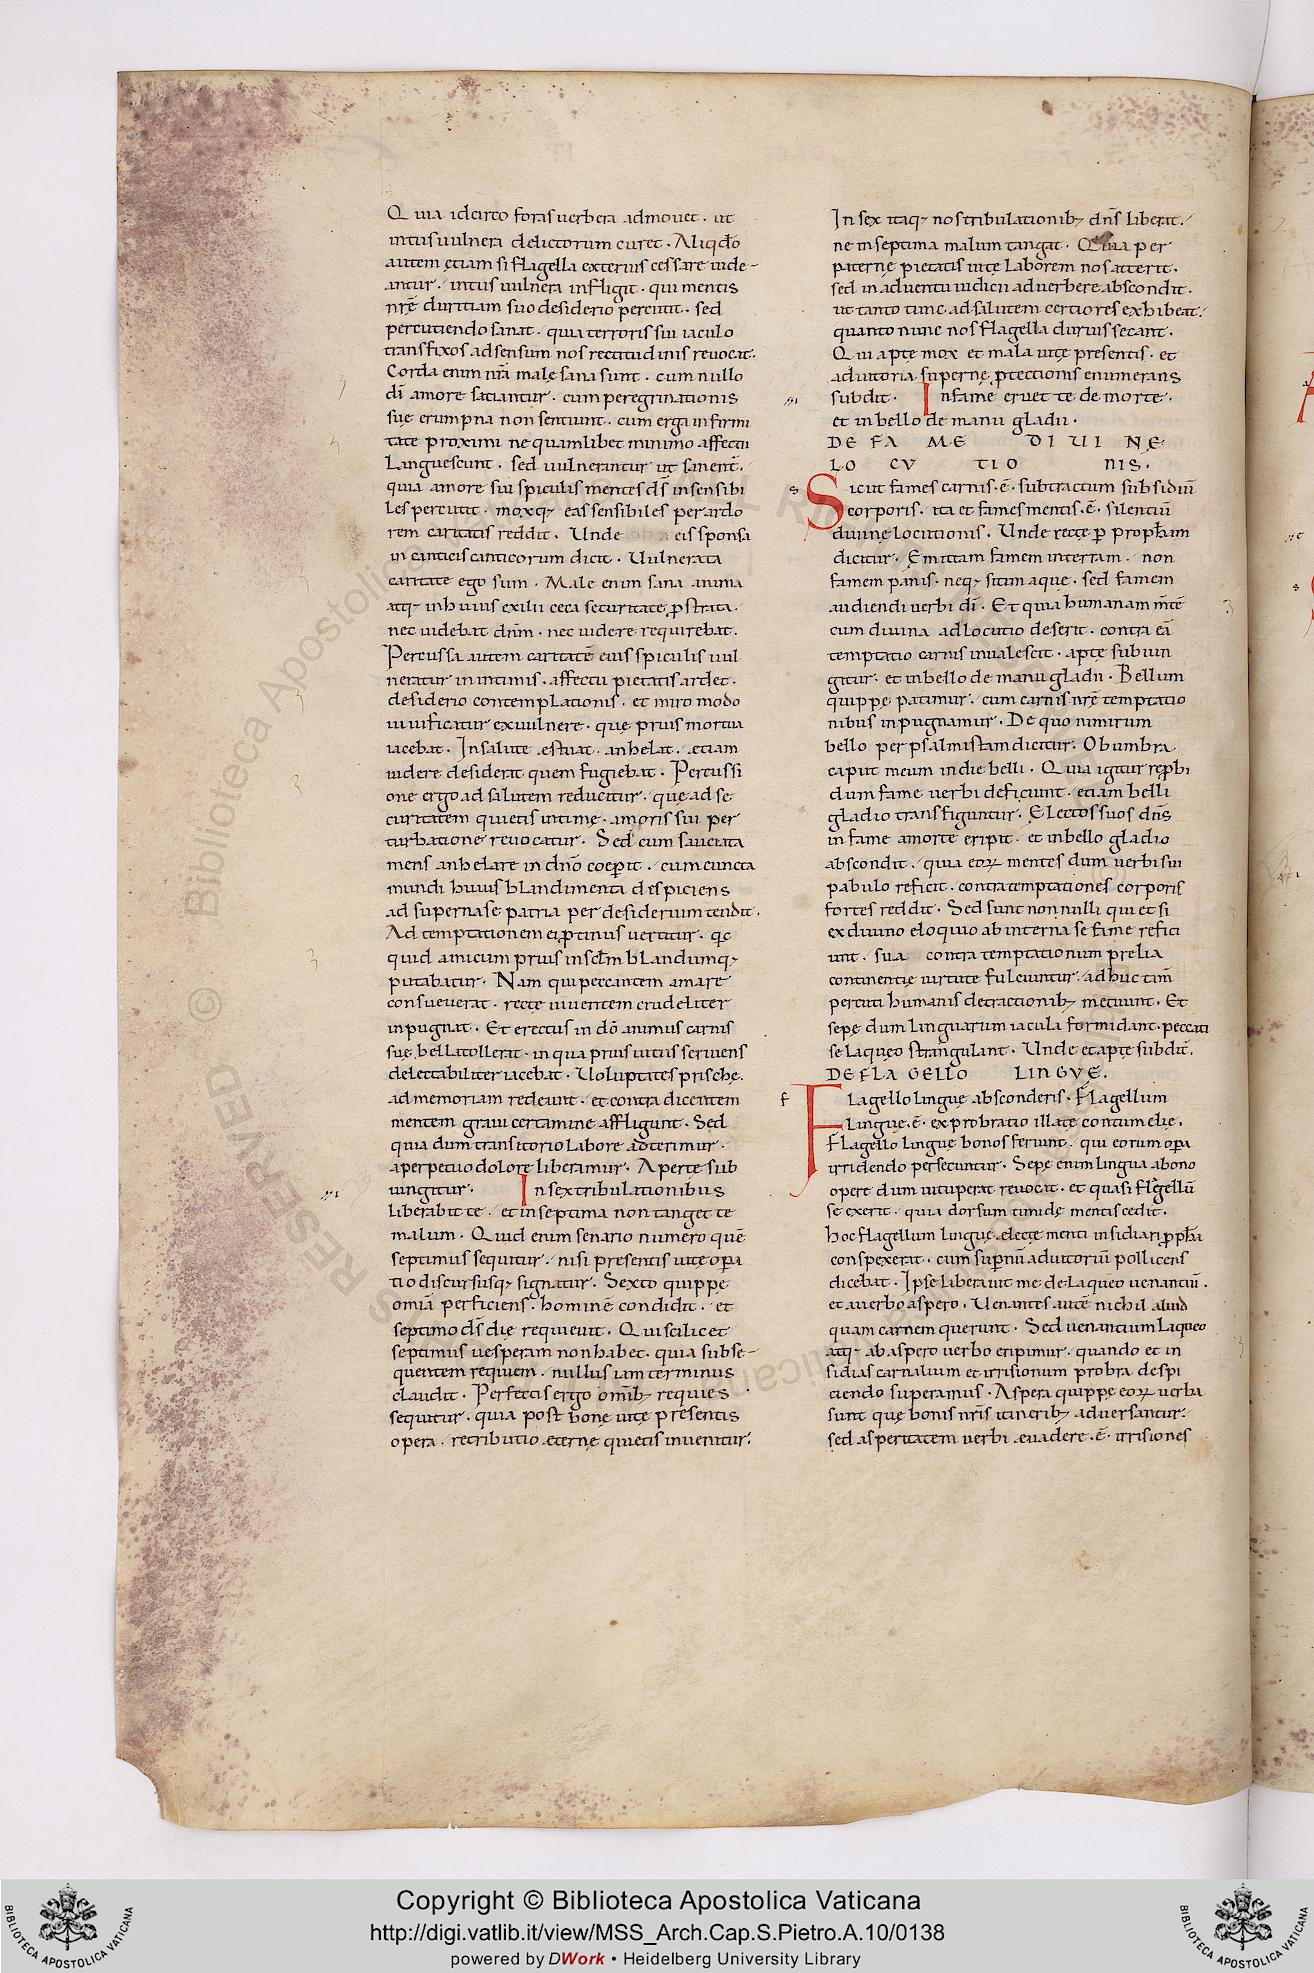 Quia idcirco foras uerbera admouet. ut
intus uulnera delictorum curet. Aliqdo
autem etiam si flagella exterius cessare uide-
antur. intus uulnera infligit. qui mentis
nrē duritiam suo desiderio percutit. sed
percutiendo sanat. quia terroris sui iaculo
transfixos ad sensum nos rectitudinis reuocat.
Corda enim nrā male sana sunt. cum nullo
dī amore satiantur. cum peregrinationis
sue erumpna non sentiunt. cum erga infirmi
tate proximi ne quamlibet minimo affectu
Languescunt. sed uulnerantur ut sanent.
quia amore sui spiculis mentes ds̄ insensibi
les percutit. moxq; eas sensibiles per ardo
rem caritatis reddit. Unde eis sponsa
in canticis canticorum dicit. Uulnerata
caritate ego sum. Male enim sana anima
atq; in huius exilii ceca securitate ꝓstrata.
nec uidebat dnm̄. nec uidere requirebat.
Percussa autem caritatē eius spiculis uul
neratur in intimis. affectu pietatis ardet.
desiderio contemplationis. et miro modo
uiuificatur ex uulnere. que prius mortua
iacebat. In salute .estuat. anhelat. .etiam
uidere desiderat quem fugiebat. Percussi
one ergo ad salutem reducitur. que ad se
curitatem quietis intimę. amoris sui per
turbatione reuocatur. Sed cum sauciata
mens anhelare in dn̄o coeꝑit. cum cuncta
mundi huius blandimenta despiciens
ad superna se patria per desiderium tendit.
Ad temptationem ei ꝓtinus uertitur. qc̄
quid amicum prius in sclm̄ blandumq;
putabatur. Nam qui peccantem amare
consueuerat. recte uiuentem crudeliter
inpugnat. Et erectus in dō animus carnis
sue bella tollerat. in qua prius uitiis seruiens
delectabiliter iacebat. Uoluptates priscę.
ad memoriam redeunt. et contra dicentem
mentem graui certamine affligunt. Sed
quia dum transitorio labore adterimur.
a perpetuo dolore liberamur. Aperte sub
iungitur. In sex tribulationibus
liberabit te. et in septima non tanget te
malum. Quid enim senario numero quē
septimus sequitur. nisi presentis uitę oꝑa
tio discursusq; signatur. Sexto quippe
omīa perficiens. hominē condidit. et
septimo ds̄ die requieuit. Qui scilicet
septimus uesperam non habet. quia subse-
quentem requiem. nullus iam terminus
claudit. Perfectis ergo omīb; requies.
sequitur. quia post bonę uitę presentis
opera. retributio .eternę quietis inuenitur.
In sex itaq; nos tribulationib; dn̄s liberat.
ne in septima malum tangat. Quia per
paternę pietatis uitę Laborem nos atterit.
sed in aduentu iudicii ad uerbere abscondit.
ut tanto tunc. ad salutem certiores exhibeat.
quanto nunc nos flagella durius secant.
Qui apte mox et mala uitę presentis. et
adiutoria supernę ꝓtectionis enumerans
subdit. In famę eruet te de morte.
et in bello de manu gladii.
DE FA ME DI UI NE.
LO CV TIO NIS.
s Sicut fames carnis .ē. subtractum subsidiū
corporis. ita et fames mentis .ē. silentiū
diuinę locutionis. Unde recte ꝑ prophām
dicitur. Emittam famem in terram. non
famem panis. neq; sitim aque. sed famem
audiendi uerbi dī. Et quia humanam m̄tē
cum diuina adlocutio deserit. contra eā
temptatio carnis inualescit. apte subiun
gitur. et in bello de manu gladii. Bellum
quippe patimur. cum carnis nrē temptatio
nibus inpugnamur. De quo nimirum
bello per psalmistam dicitur. Obumbra.
caput meum in die belli. Quia igitur reꝓbi
dum fame uerbi deficiunt. etiam belli
gladio transfiguntur. Electos suos dn̄s
in fame a morte eripit. et in bello gladio
abscondit. quia eoꝝ mentes dum uerbi sui
pabulo reficit. contra temptationes corporis
fortes reddit. Sed sunt nonnulli qui etsi
ex diuino eloquio ab interna se fame refici
unt. sua contra temptationum prelia
continentię uirtute fulciuntur. adhuc tam̄
percuti humanis detractionib; metuunt. Et
sepe dum linguarum iacula formidant. peccati
se laqueo strangulant. Unde et apte subdit̄.
DE FLA GELLO LINGVE.
f Flagello linguę absconderis. Flagellum
linguę .ē. exprobratio illatę contumelię.
Flagello linguę bonos feriunt. qui eorum oꝑa
irridendo persecuntur. Sepe enim lingua a bono
opere dum uituperat reuocat. et quasi flagellū
se exerit. quia dorsum timidę mentis cedit.
hoc flagellum linguę electę menti insidiari ꝓphā
conspexerat. cum suꝑnū adiutoriū pollicens
dicebat. Ipse liberauit me de laqueo uenantiū.
et a uerbo aspero. Uenantes autē nichil aliud
quam carnem querunt. Sed uenantium Laqueo
atq; ab aspero uerbo eripimur. quando et in
sidias carnalium et irrisionum probra despi
ciendo superamus. Aspera quippe eoꝝ uerba
sunt que bonis nrīs itinerib; aduersantur.
sed asperitatem uerbi .euadere .ē. irrisiones
© Biblioteca Apostolica Vaticana ALL RIGHTS RESERVED
Copyright © Biblioteca Apostolica Vaticana
http://digi.vatlib.it/view/MSS_Arch.Cap.S.Pietro.A.10/0138
powered by DWork • Heidelberg University Library
BIBLIOTECA APOSTOLICA VATICANA
BIBLIOTECA APOSTOLICA VATICANA